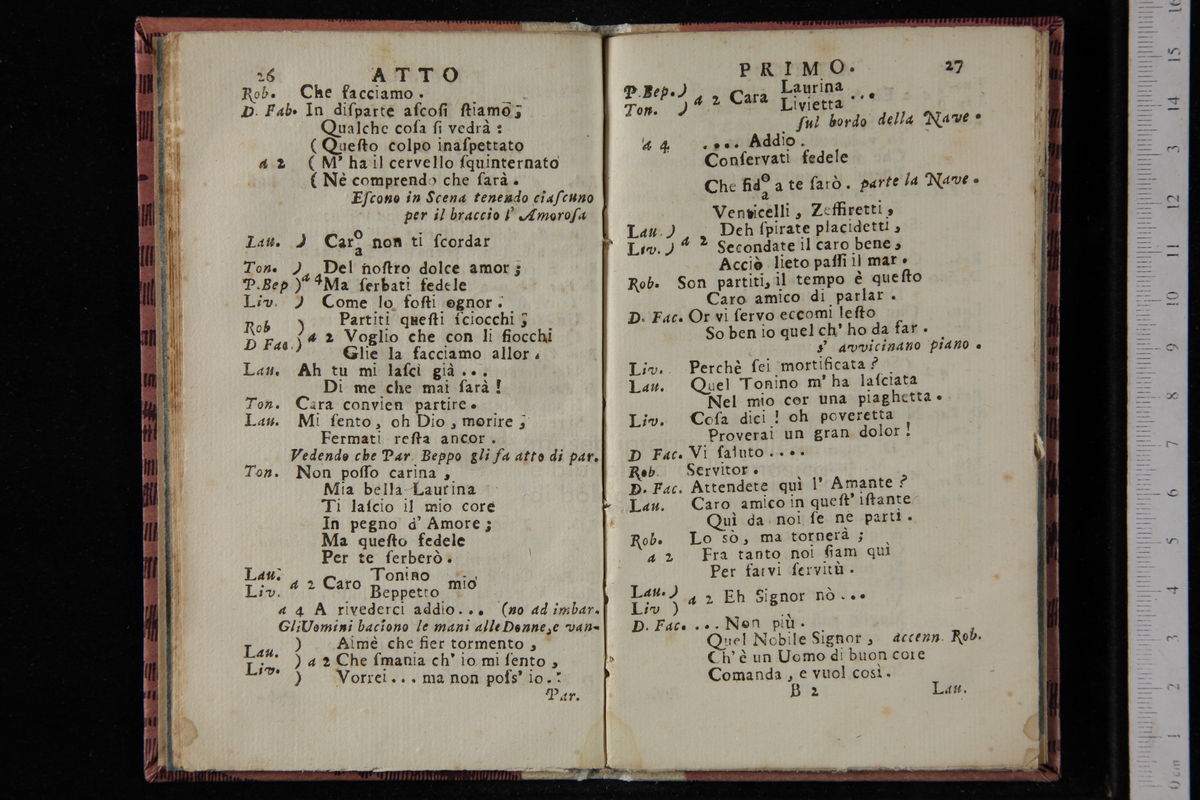 26 ATTO
Rob. Che facciamo.
D. Fab. In diſparte aſcoſi ſtiamo;
Qualche coſa ſi vedrà:
( Queſto colpo inaſpettato
a 2 ( M' ha il cervello ſquinternato
( Nè comprendo che ſarà.
Eſcono in Scena tenendo ciaſcuno
per il braccio l' Amoroſa
Lau. ) Car o/a non ti ſcordar
Ton. ) Del noſtro dolce amor;
P.Bep ) a 4 Ma ſerbati fedele
Liv. ) Come lo foſti ognor.
Rob ) Partiti queſti ſciocchi;
D Fac.) a 2 Voglio che con li fiocchi
Glie la facciamo allor.
Lau. Ah tu mi laſci già...
Di me che mai ſarà!
Ton. Cara convien partire.
Lau. Mi ſento, oh Dio, morire;
Fermati reſta ancor.
Vedendo che Par. Beppo gli fa atto di par.
Ton. Non poſſo carina,
Mia bella Laurina
Ti laſcio il mio core
In pegno d' Amore;
Ma queſto fedele
Per te ſerberò.
Lau. Tonino
a 2 Caro mio
Liv. Beppetto
a 4 A rivederci addio... (no ad imbar.
Gli Uomini baciono le mani alle Donne, e van-
Lau. ) Aimè che fier tormento,
) a 2 Che ſmania ch' io mi ſento,
Liv. ) Vorrei... ma non poſs' io.:
Par.
PRIMO. 27
P.Bep.) Laurina
a 2 Cara ...
Ton. ) Livietta
ſul bordo della Nave.
a 4 .... Addio.
Conſervati fedele
Che fid o/a a te ſarò. parte la Nave.
Venticelli, Zeffiretti,
Lau.) Deh ſpirate placidetti,
Liv.) a 2 Secondate il caro bene,
Acciò lieto paſſi il mar.
Rob. Son partiti, il tempo è queſto
Caro amico di parlar.
D. Fac. Or vi ſervo eccomi leſto
So ben io quel ch' ho da far.
s' avvicinano piano.
Liv. Perchè ſei mortificata?
Lau. Quel Tonino m' ha laſciata
Nel mio cor una piaghetta.
Liv. Coſa dici! oh poveretta
Proverai un gran dolor!
D Fac. Vi ſaluto....
Rob. Servitor.
D. Fac. Attendete quì l' Amante?
Lau. Caro amico in queſt' iſtante
Quì da noi ſe ne partì.
Rob. Lo sò, ma tornerà;
a 2 Fra tanto noi ſiam quì
Per farvi ſervitù.
Lau.)
a 2 Eh Signor nò...
Liv )
D. Fac. ... Non più.
Quel Nobile Signor, accenn. Rob.
Ch' è un Uomo di buon core
Comanda, e vuol così.
B 2 Lau.